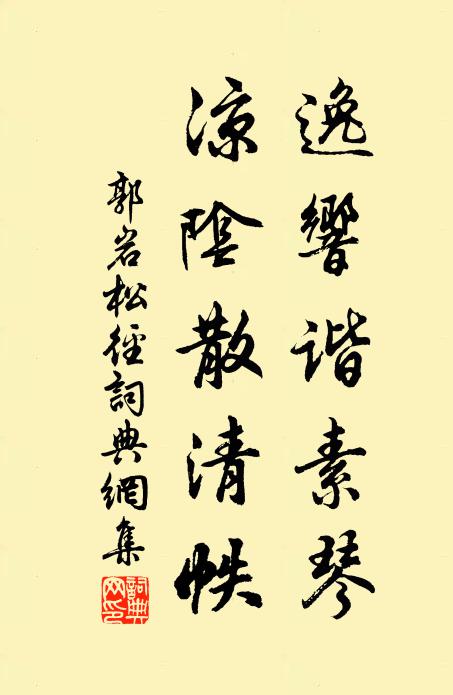 逸響諧素琴
涼陰散清帙
郭岩松徑詞典網集
詞典網印